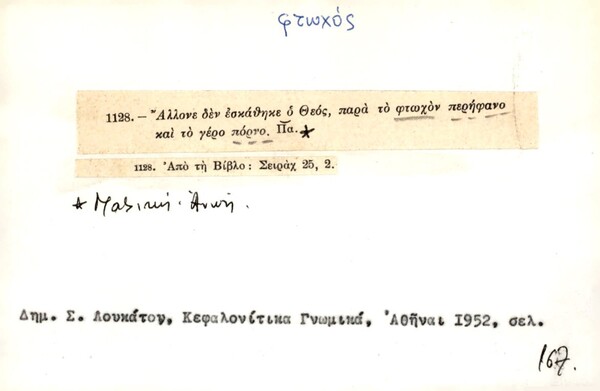 φτωχός
1128. — Ἄλλονε δὲν ἐσκάθηκε ὁ Θεός, παρὰ τὸ φτωχὸν περήφανο
καὶ τὸ γέρο πόρνο. Πα. *
1128. Ἀπὸ τὴ Βίβλο: Σειρὰχ 25, 2.
*
Δημ. Σ. Λουκάτου, Κεφαλονίτικα Γνωμικά, Ἀθῆναι 1952, σελ.
167.